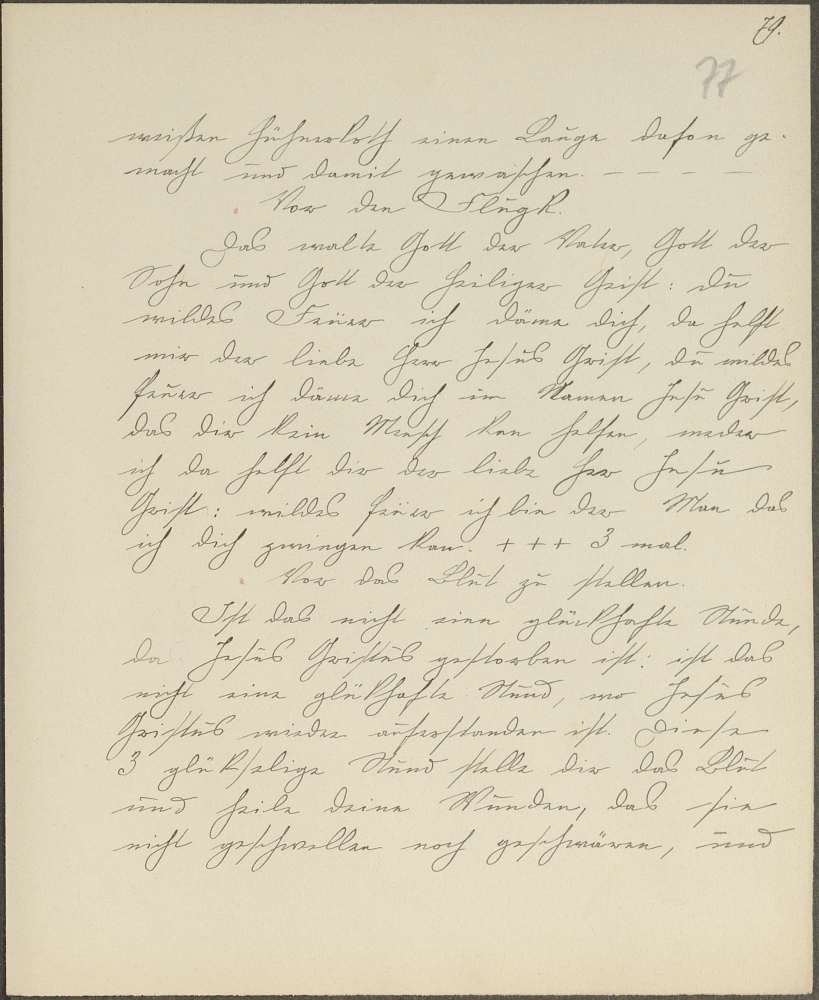 79.
77
weißen Hühnerkoth einen Lauge dafon ge-
macht und damit gewaschen. – – – –
Vor den Flugk.
Das walte Gott der Vater, Gott der
Sohn und Gott der heiliger Geist: du
wildes Feuer ich däme dich, da helft
mir der liebe Herr Jesus Grist, du wildes
feuer ich däme dich im Namen Jesu Grist,
das dir kein Mensch kan helfen, weder
ich da helft dir der liebe Her Jesu
Grist: wildes feuer ich bin der Man das
ich dich zwingen kan. + + + 3 mal.
Vor das Blut zu stellen.
Ist das nicht eine glückhafte Stunde,
da Jesus Gristus gestorben ist: ist das
nicht eine glükhafte Stund, wo Jesus
Gristus wieder auferstanden ist. Diese
3 glükselige Stund stelle dir das Blut
und heile deine Wunden, das sie
nicht geschwellen noch geschwären, und